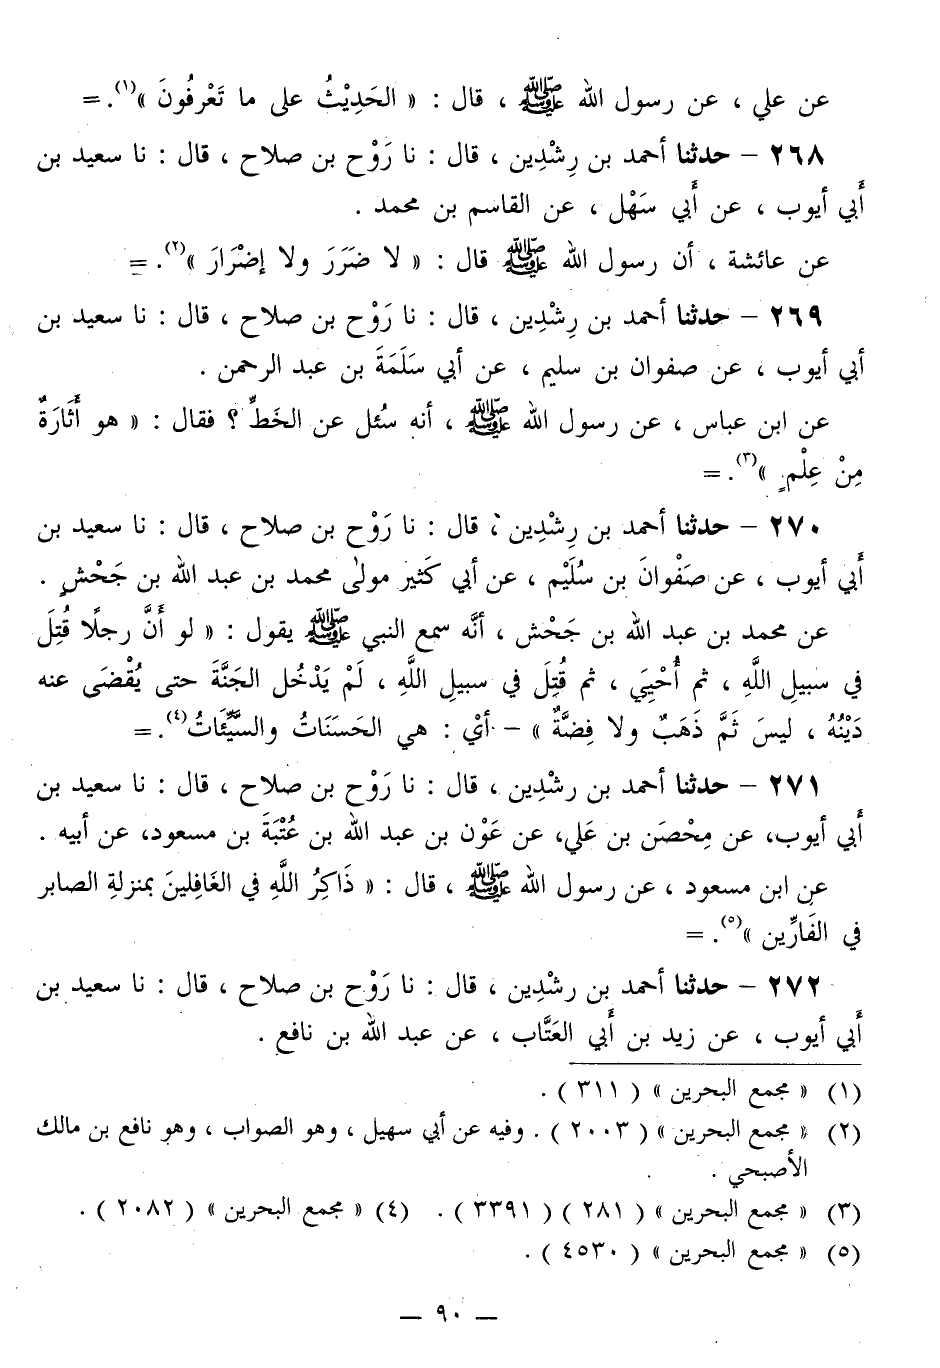 عن علي ، عن رسول الله ﷺ ، قال : « الحَدِيْثُ على ما تَعْرِفُونَ »(١). =
٢٦٨ – حدثنا أحمد بن رِشْدِين ، قال : نا رَوْح بن صلاح ، قال : نا سعيد بن
أَبي أيوب ، عن أَبي سَهْل ، عن القاسم بن محمد .
عن عائشة ، أن رسول الله ﷺ قال : « لا ضَرَرَ ولا إضْرَارَ »(٢). =
٢٦٩ – حدثنا أحمد بن رِشْدِين ، قال : نا رَوْح بن صلاح ، قال : نا سعيد بن
أبي أيوب ، عن صفوان بن سليم ، عن أبي سَلَمَةَ بن عبد الرحمن .
عن ابن عباس ، عن رسول الله ﷺ ، أنه سُئل عن الخَطِّ ؟ فقال : « هو أَثَارَةٌ
مِنْ عِلْمٍ »(٣). =
٢٧٠ – حدثنا أحمد بن رِشْدِين ، قال : نا رَوْح بن صلاح ، قال : نا سعيد بن
أَبي أيوب ، عن صَفْوانَ بن سُلَيْم ، عن أبي كَثير مولىٰ محمد بن عبد الله بن جَحْشٍ .
عن محمد بن عبد الله بن جَحْش ، أنَّه سمع النبي ﷺ يقول : « لو أَنَّ رجلًا قُتِلَ
في سبيلِ اللَّهِ ، ثم أُحْيِيَ ، ثم قُتِلَ في سبيلِ اللَّهِ ، لَمْ يَدْخُل الجَنَّةَ حتى يُقْضَى عنه
دَيْنُهُ ، ليسَ ثَمَّ ذَهَبٌ ولا فِضَّةٌ » – أيْ : هي الحَسَنَاتُ والسَّيِّئَاتُ(٤). =
٢٧١ – حدثنا أحمد بن رشْدِين ، قال : نا رَوْح بن صلاح ، قال : نا سعيد بن
أَبي أيوب، عن مِحْصَن بن عَلي، عن عَوْن بن عبد الله بن عُتْبَةَ بن مسعود، عن أبيه .
عن ابن مسعود ، عن رسول الله ﷺ ، قال : « ذَاكِرُ اللَّهِ في الغَافِلينَ بمنزلةِ الصابر
في الفَارِّين »(٥). =
٢٧٢ – حدثنا أحمد بن رشْدِين ، قال : نا رَوْح بن صلاح ، قال : نا سعيد بن
أَبي أيوب ، عن زيد بن أَبي العَتَّاب ، عن عبد الله بن نافع .
(١) « مجمع البحرين » ( ٣١١ ) .
(٢) « مجمع البحرين » ( ٢٠٠٣ ) . وفيه عن أبي سهيل ، وهو الصواب ، وهو نافع بن مالك
الأصبحي .
(٣) « مجمع البحرين » ( ٢٨١ ) ( ٣٣٩١ ) . (٤) « مجمع البحرين » ( ٢٠٨٢ ) .
(٥) « مجمع البحرين » ( ٤٥٣٠ ) .
– ٩٠ –